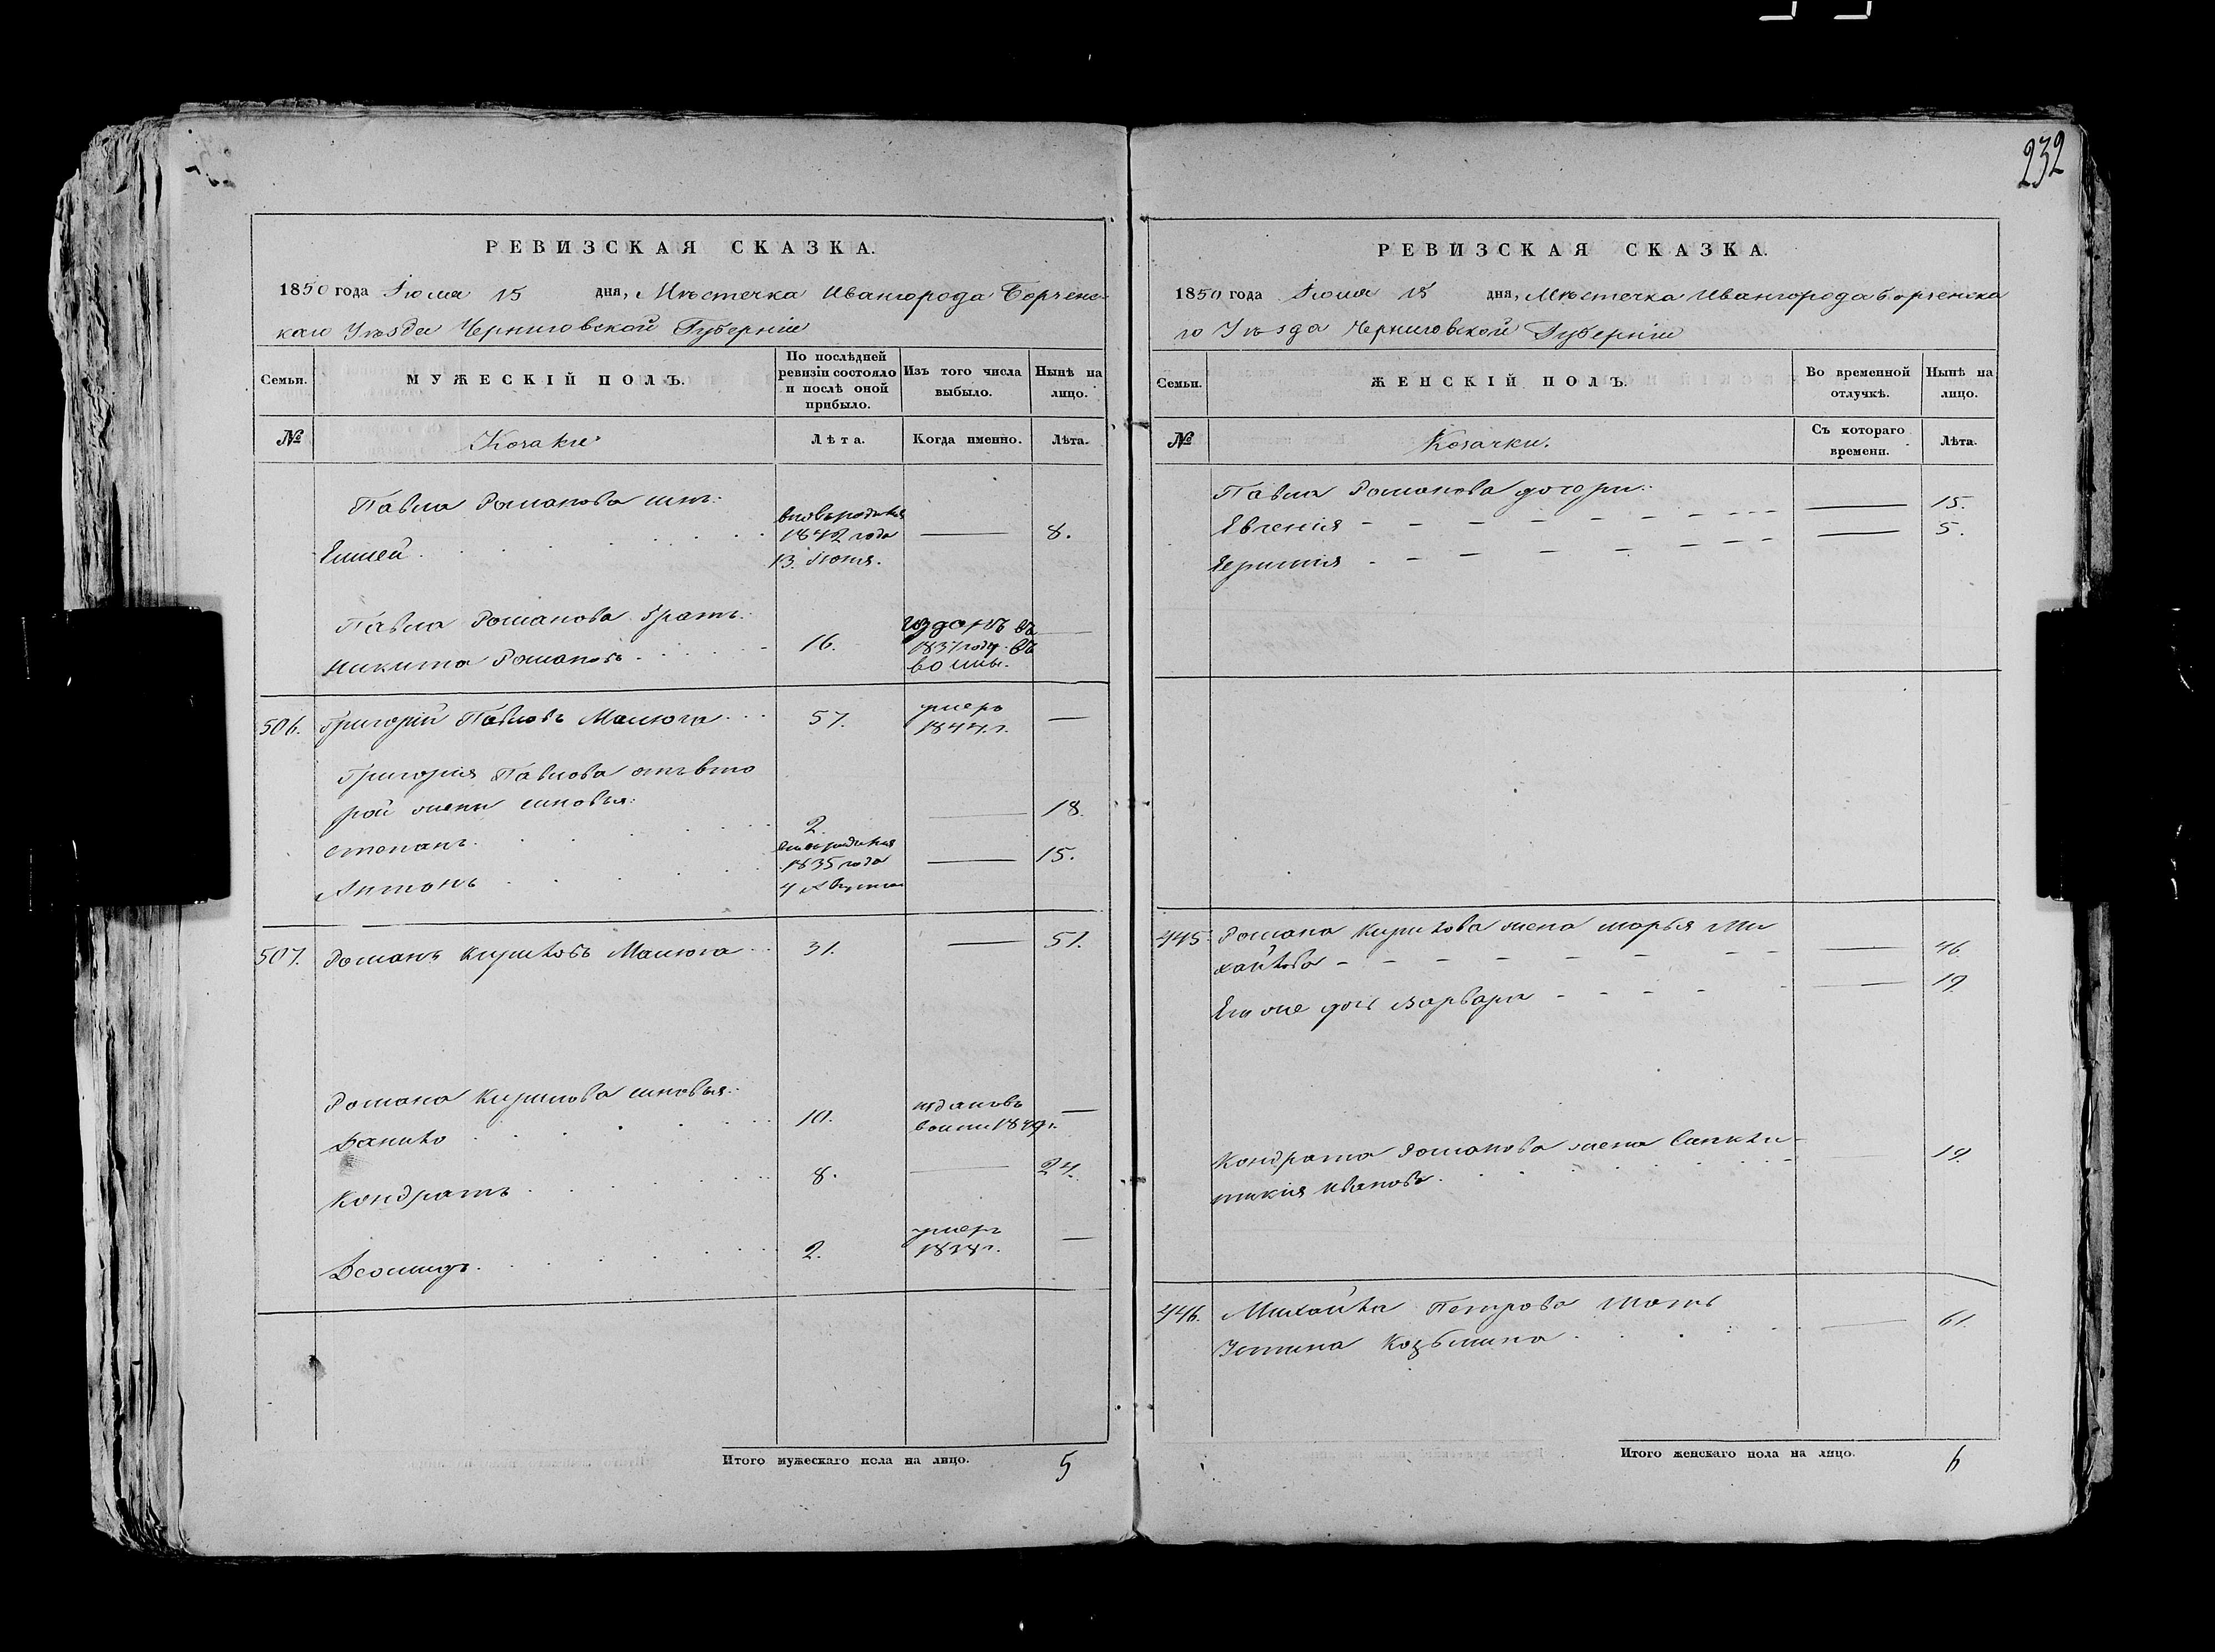 232
РЕВИЗСКАЯ СКАЗКА.
1850 года Июля 15 дня, Мѣстечка Ивангорода Борзенс-
каго Уѣзда Черниговской Губерніи
Семьи.
МУЖЕСКІЙ ПОЛЪ.
По послѣдней
ревизіи состояло
и послѣ оной
прибыло.
Изъ того числа
выбыло.
Нынѣ на
лицо.
№
Козаки
Лѣта.
Когда именно.
Лѣта.
Павла Романова сынъ:
1842 года
8.
13. Июня.
Павла Романова братъ:
Никита Романовъ
16.
1837 году
506. Григорій Павловъ Малюга
57.
умеръ
1844 г.
—
Григорія Павлова отъ вто
рой жены сыновья:
Степанъ
2.
18.
Антонъ
1835 года
4 Августа
15.
507. Романъ Кириловъ Малюга
31.
51.
Романа Кирилова сыновья:
Данило
10.
—
Кондратъ
8.
24.
Леонидъ
2.
умеръ
—
Итого мужескаго пола на лицо.
5
РЕВИЗСКАЯ СКАЗКА.
1850 года Июля 15 дня, Мѣстечка Ивангорода Борзенска
го Уѣзда Черниговской Губерніи
Семьи.
ЖЕНСКІЙ ПОЛЪ.
Во временной
отлучкѣ.
Нынѣ на
лицо.
№
Козачки.
Съ котораго
времени.
Лѣта.
Павла Романова дочери:
Евгенія
15.
5.
445. Романа Кирилова жена Марья Ми
хайлова
46.
Его же дочь Варвара
19.
Кондрата Романова жена Синкли-
тикія Иванова
19.
446. Михайла Петрова мать
Устина Козьмина
61.
Итого женскаго пола на лицо.
6